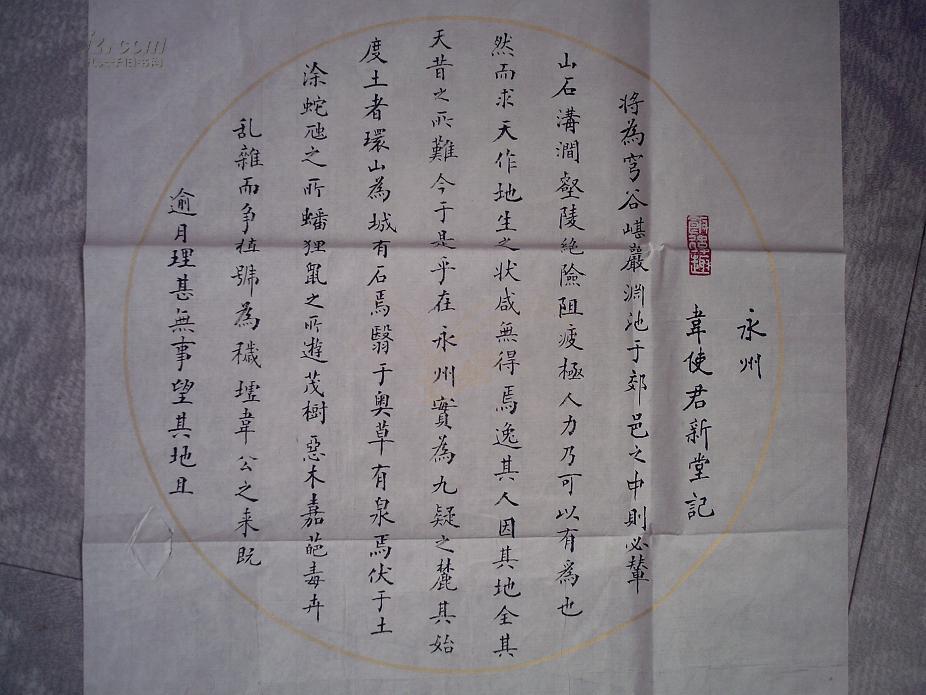 永州
韋使君新堂記
将為穹谷嵁巖渊池于郊邑之中則必輦
山石溝澗壑陵絶險阻疲極人力乃可以有為也
然而求天作地生之状咸無得焉逸其人因其地全其
天昔之所難今于是乎在永州實為九疑之麓其始
度土者環山為城有石焉翳于奥草有泉焉伏于土
涂蛇虺之所蟠狸鼠之所遊茂樹惡木嘉葩毒卉
乱雜而争植號為穢墟韋公之来既
逾月理甚無事望其地且